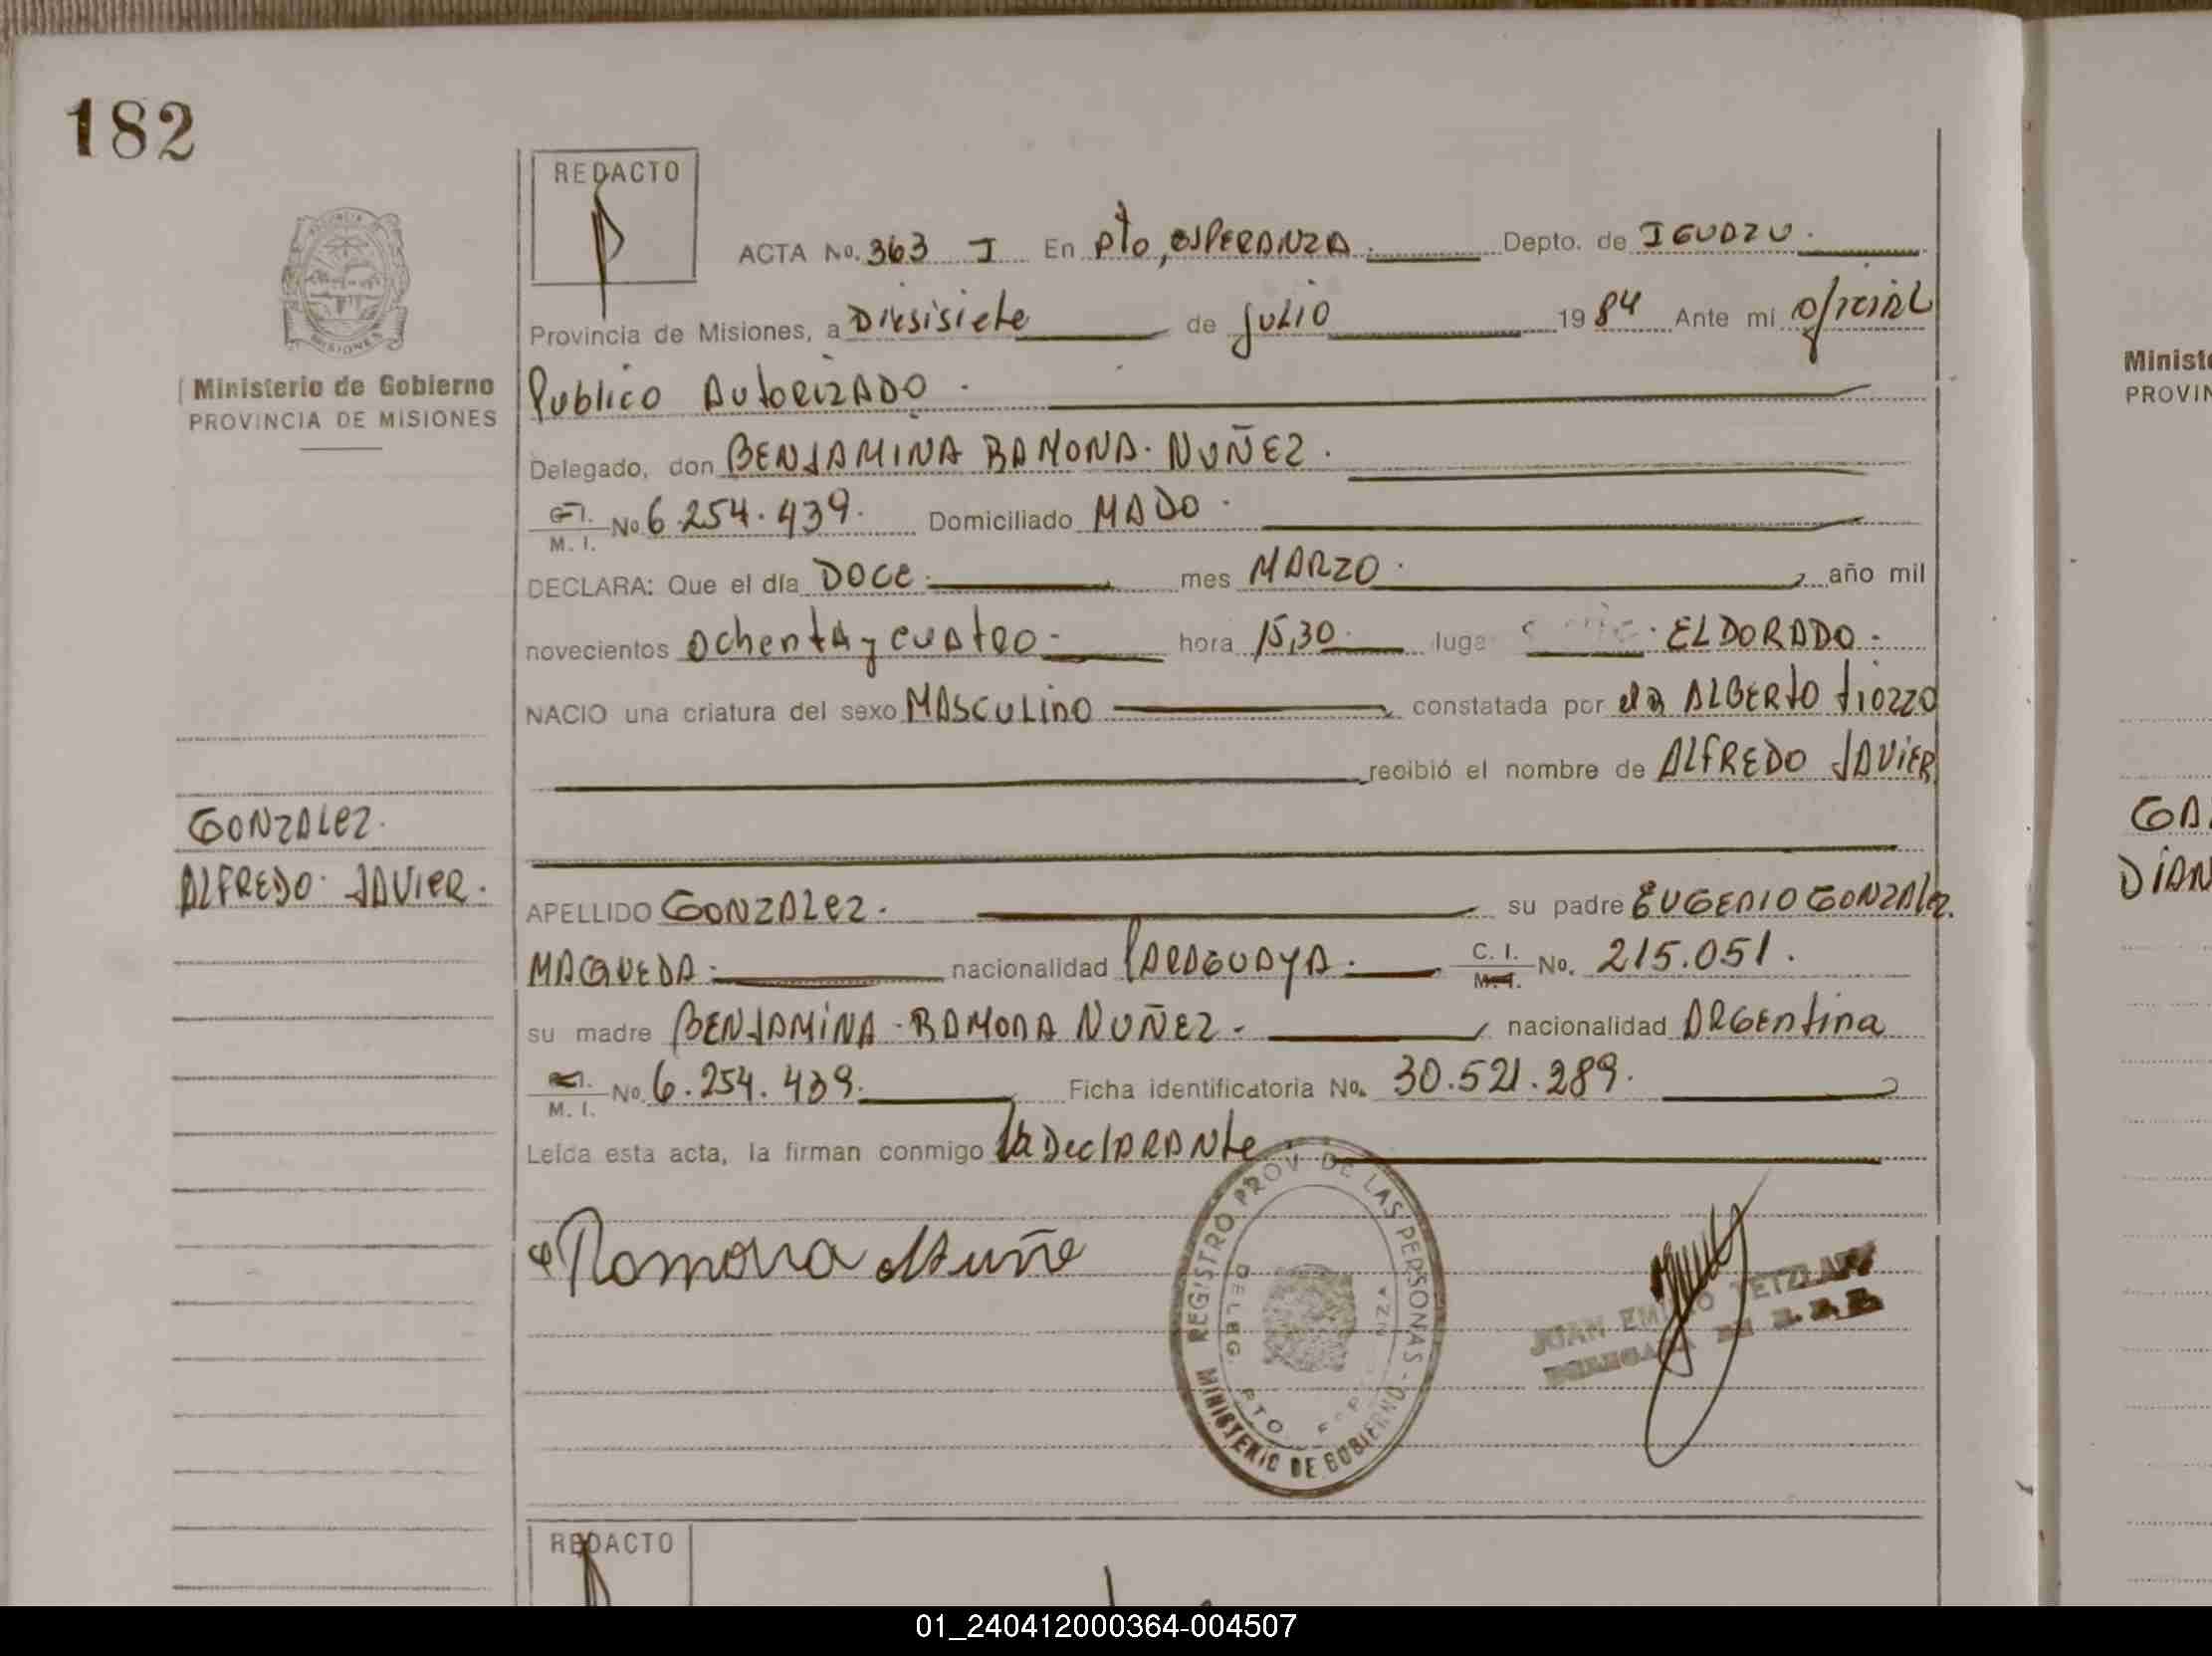 182
REDACTO
ACTA No. 363 I En Pto, ESPERANZA. Depto. de IGUAZU.
Provincia de Misiones, a Diesisiete de julio 1984 Ante mi oficial
Publico Autorizado.
Ministerio de Gobierno
PROVINCIA DE MISIONES
Delegado, don BENJAMINA RAMONA. NUÑEZ.
C. I.
M. I. No. 6.254.439. Domiciliado MADO.
DECLARA: Que el día DOCE. mes MARZO. año mil
novecientos ochenta y cuatro- hora 15,30. luga . ELDORADO.
NACIO una criatura del sexo MASCULINO constatada por ALBERTO tiozzo
recibió el nombre de ALFREDO JAVIER
GONZALEZ.
ALFREDO. JAVIER.
APELLIDO GONZALEZ. su padre EUGENIO GONZALEZ.
MAQUEDA. nacionalidad PARAGUAYA. C. I.
M. I. No. 215.051.
su madre BENJAMINA-RAMONA NUÑEZ. nacionalidad ARGENtina
M. I. No. 6.254.439. Ficha identificatoria No. 30.521.289.
Leída esta acta, la firman conmigo la DeclARANte
Ramona Nuñe
REGISTRO PROV. DE LAS PERSONAS - MINISTERIO DE GOBIERNO
DELEG. PTO
JUAN EMILIO TETZLAFF
REDACTO
Ministe
PROVIN
GA
DIAN
01_240412000364-004507